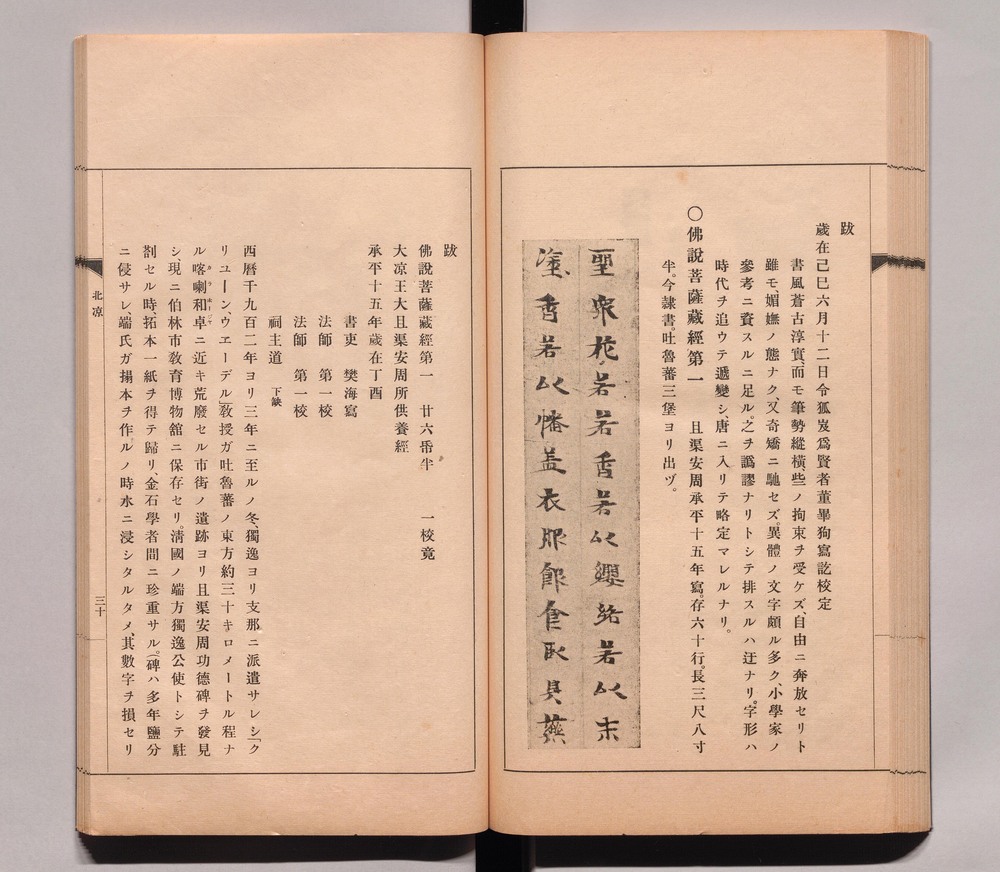 跋
歲在己巳六月十二日令狐岌爲賢者董畢狗寫訖校定
書風蒼古淳實、而モ筆勢縱橫、些ノ拘束ヲ受ケズ、自由ニ奔放セリト
雖モ、媚嫵ノ態ナク、又奇矯ニ馳セズ。異體ノ文字頗ル多ク、小學家ノ
參考ニ資スルニ足ル。之ヲ譌謬ナリトシテ排スルハ迂ナリ。字形ハ
時代ヲ追ウテ遞變シ、唐ニ入リテ略定マレルナリ。
〇佛說菩薩藏經第一 且渠安周承平十五年寫。存六十行。長三尺八寸
半。今隷書。吐魯蕃三堡ヨリ出ヅ。
聖衆花若若香若以纓絡若以末
塗香若以幡盖衣服飲食臥具
跋
佛說菩薩藏經第一 廿六帋半 一校竟
大凉王大且渠安周所供養經
承平十五年歲在丁酉
書吏 樊海寫
法師 第一校
法師 第一校
祠主道 下缺
西曆千九百二年ヨリ三年ニ至ルノ冬、獨逸ヨリ支那ニ派遣サレシ「ク
リユーン、ウエーデル」敎授ガ吐魯蕃ノ東方約三十キロメートル程ナ
ル喀喇和卓ニ近キ荒廢セル市街ノ遺跡ヨリ且渠安周功德碑ヲ發見
シ現ニ伯林市敎育博物舘ニ保存セリ。淸國ノ端方獨逸公使トシテ駐
剳セル時、拓本一紙ヲ得テ歸リ、金石學者間ニ珍重サル。(碑ハ多年鹽分
ニ侵サレ、端氏ガ搨本ヲ作ルノ時水ニ浸シタルタメ、其數字ヲ損セリ
北凉
三十